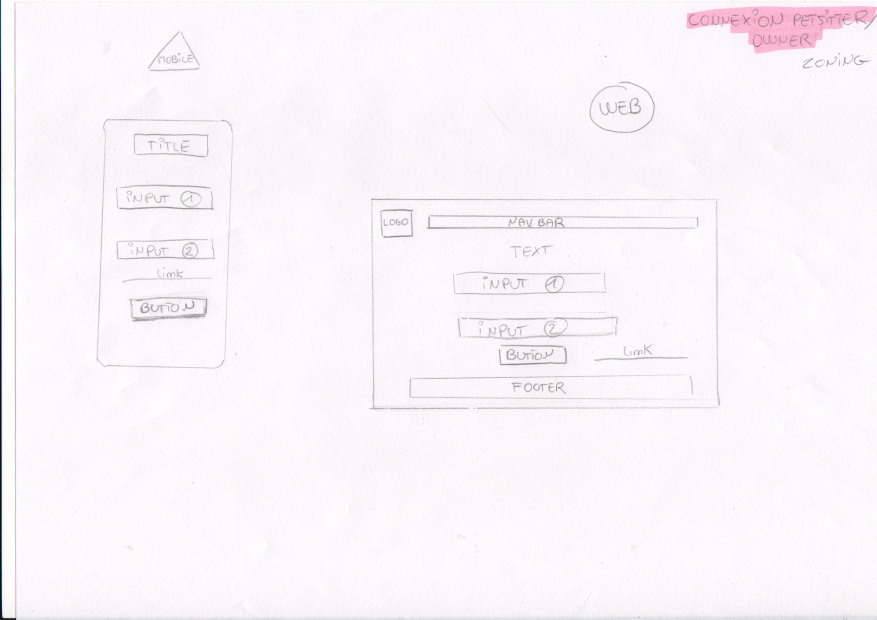 CONNEXION PETSITTER/
OWNER
ZONING
MOBILE
TITLE
INPUT 1
INPUT 2
Link
BUTTON
WEB
LOGO
NAV BAR
TEXT
INPUT 1
INPUT 2
BUTTON
Link
FOOTER